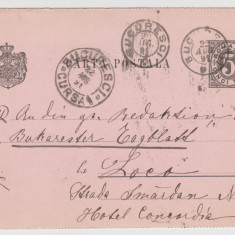 CARTA POSTALA
BUCURESCI
BUCURESCI
CURSA
5
An die gee Redaktion
Bukarester Tagblatt
Loco
Strada Smârdan
Hotel Concordia